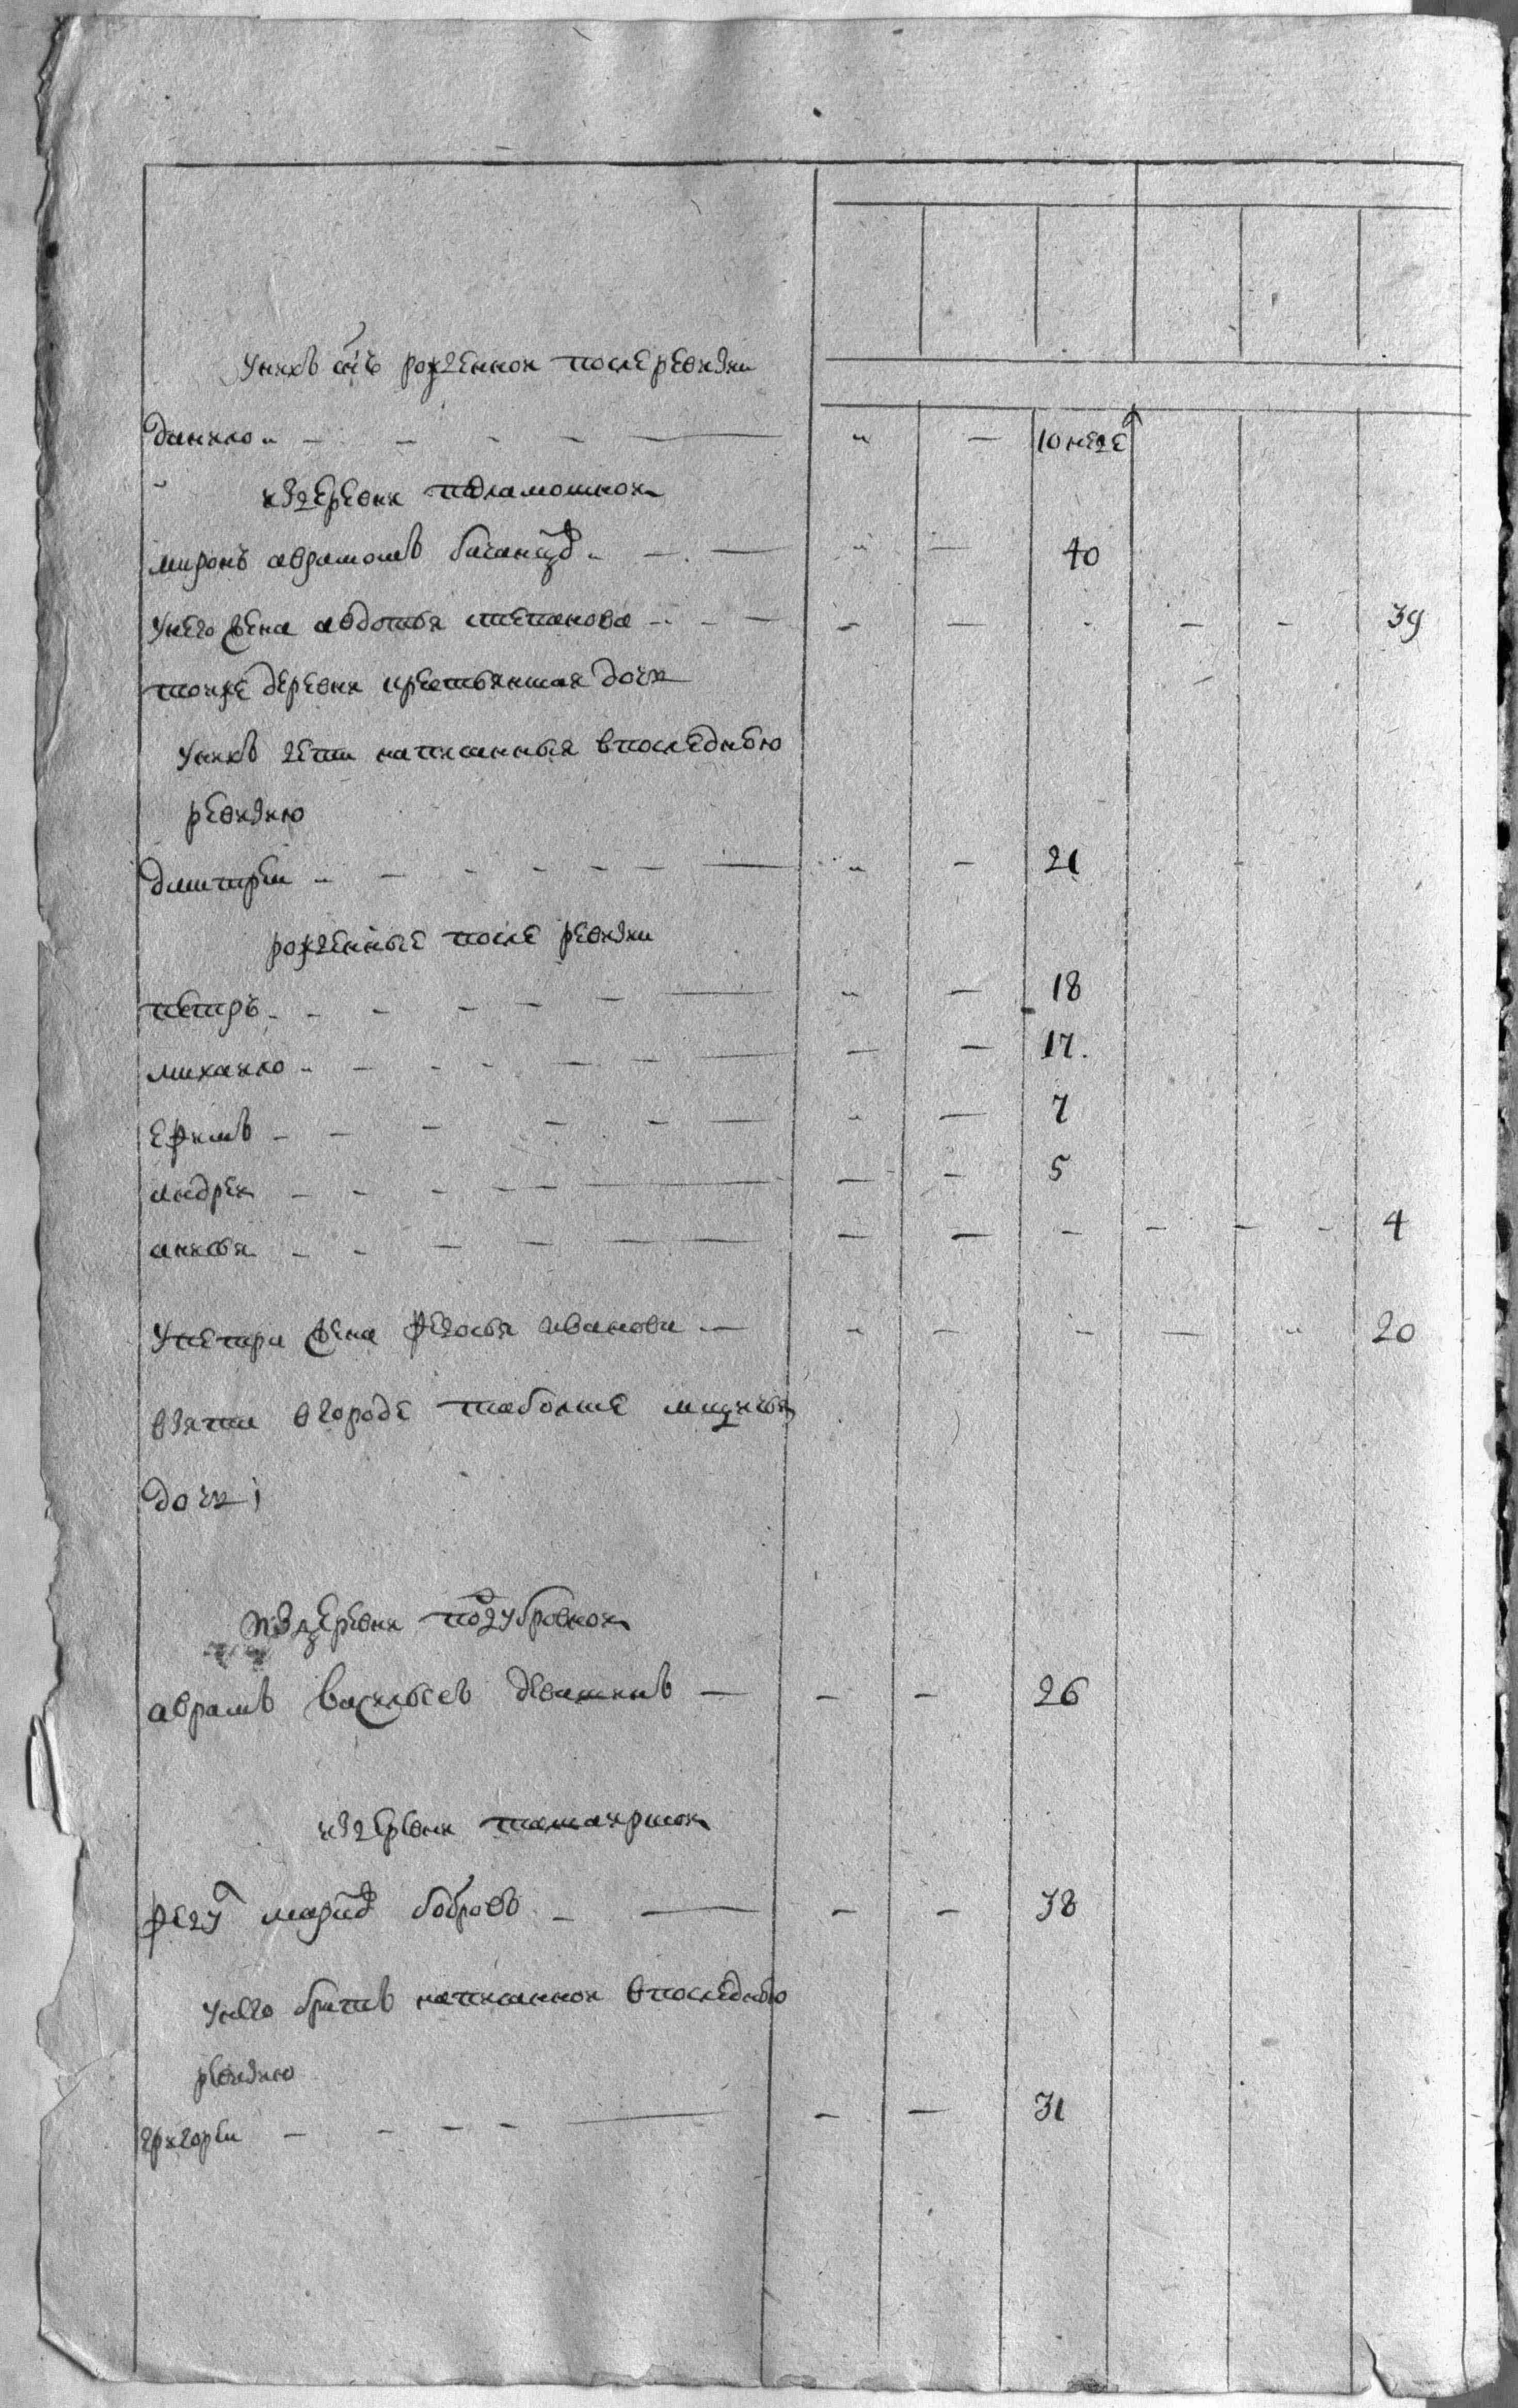 Унихъ сн҃ъ рожденной послеревизии
данило 10 неде
издеревни подрамошной
миронъ аврамовъ 40
Унего жена авдотья степанова 39
тоиже деревни крестьянская дочи
Унихъ дети написанныя впоследнью
ревизию
Дмитреи 21
рожденные после ревизии
петръ 18
михаило 17.
ефимъ 7
андреи 5
анисья 4
Упетра жена федосья иванова 20
взята вгороде таболске
дочи
издеревни подубровной
аврамъ васильевъ девяткинъ 26
издеревни
феду бобровъ 38
унего братъ написанной впоследнью
ревизию
григореи 31